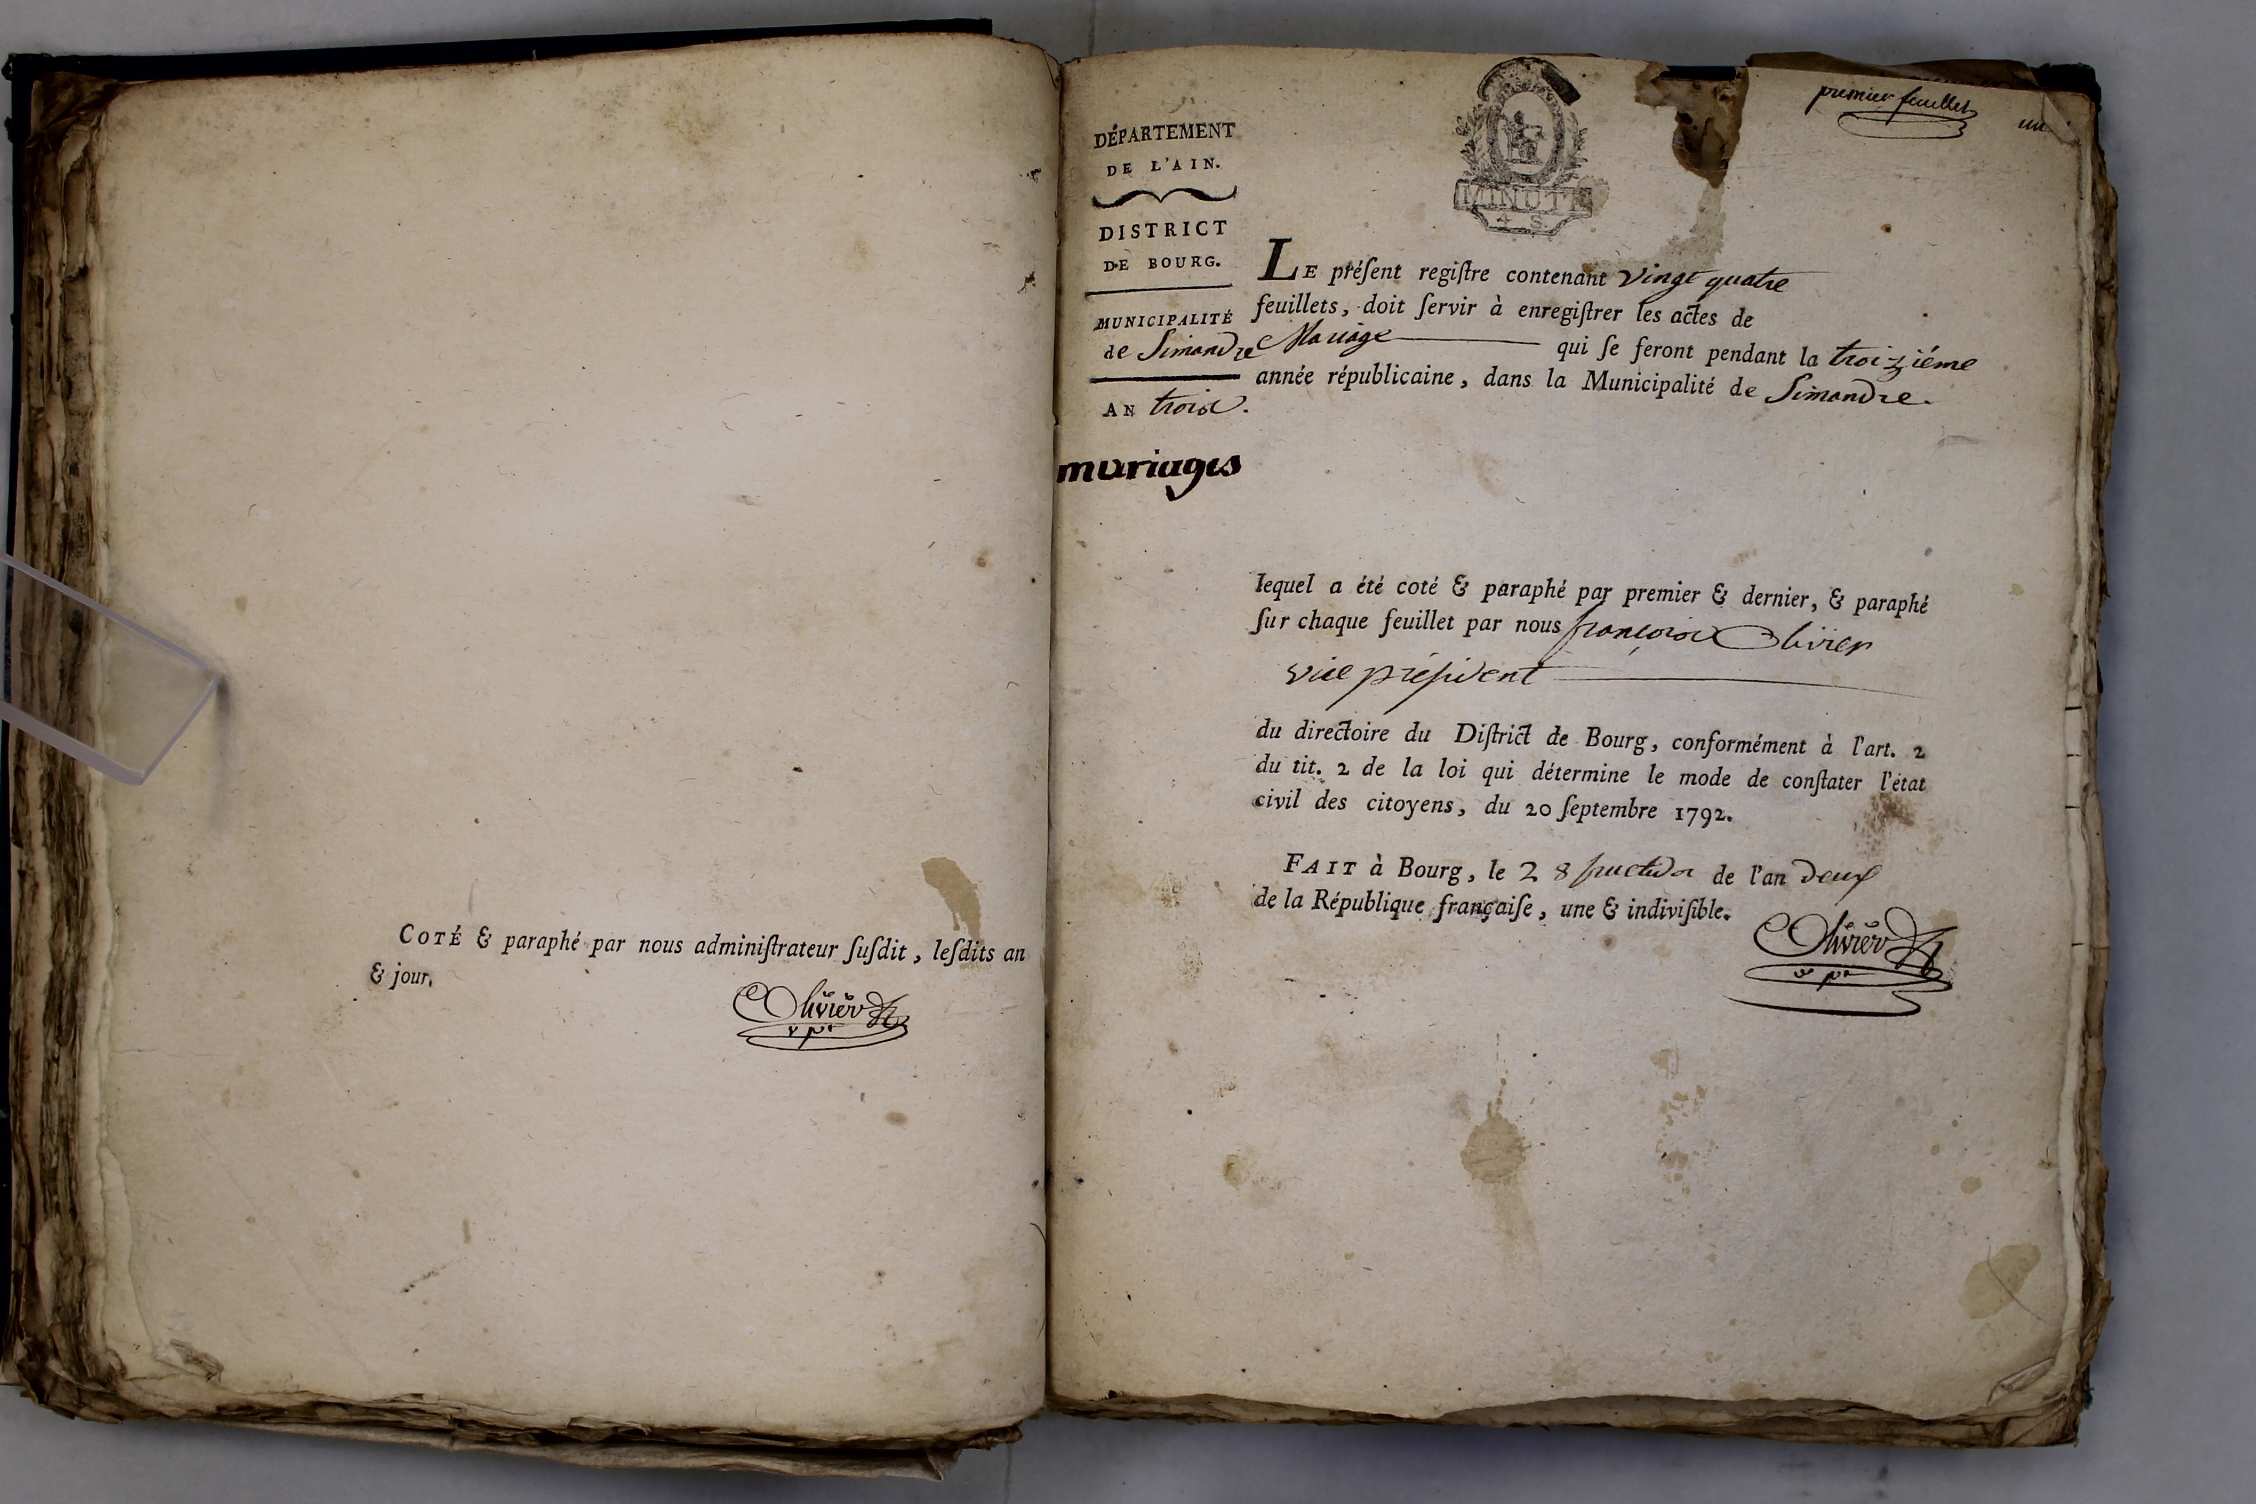 COTÉ & paraphé par nous adminiſtrateur ſuſdit, leſdits an
& jour.
Olivier
v pt
premier feuillet
un
MINUTE
4 S
DÉPARTEMENT
DE L'AIN.
DISTRICT
DE BOURG.
MUNICIPALITÉ
de Simandre
AN trois.
mariages
LE préſent regiſtre contenant vingt quatre
feuillets, doit ſervir à enregiſtrer les actes de
Mariage qui ſe feront pendant la troizième
année républicaine, dans la Municipalité de Simandre.
lequel a été coté & paraphé par premier & dernier, & paraphé
ſur chaque feuillet par nous françois Olivier
vice préſident
du directoire du Diſtrict de Bourg, conformément à l'art. 2
du tit. 2 de la loi qui détermine le mode de conſtater l'état
civil des citoyens, du 20 ſeptembre 1792.
FAIT à Bourg, le 28 fructidor de l'an deux
de la République françaiſe, une & indiviſible.
Olivier
v pt